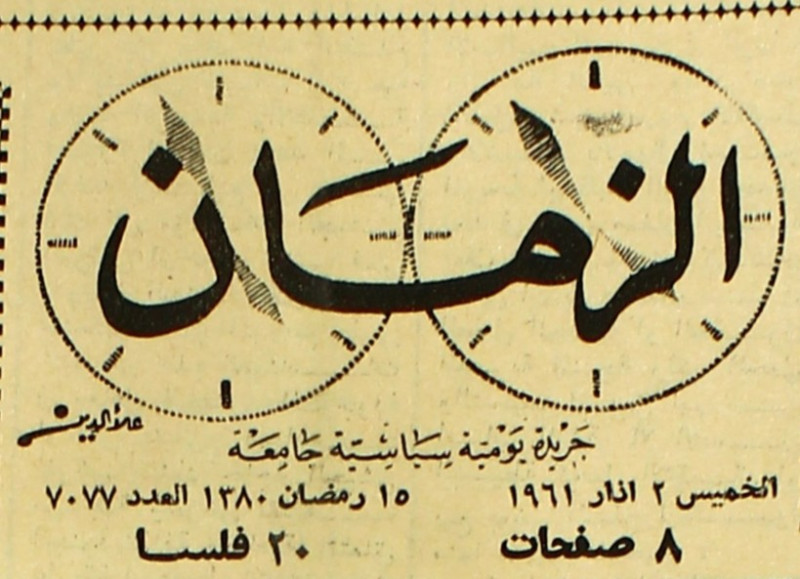 الزمان
علاءالدين
جريدة يومية سياسية جامعة
الخميس ٢ اذار ١٩٦١ ١٥ رمضان ١٣٨٠ العدد ٧٠٧٧
٨ صفحات ٢٠ فلسا